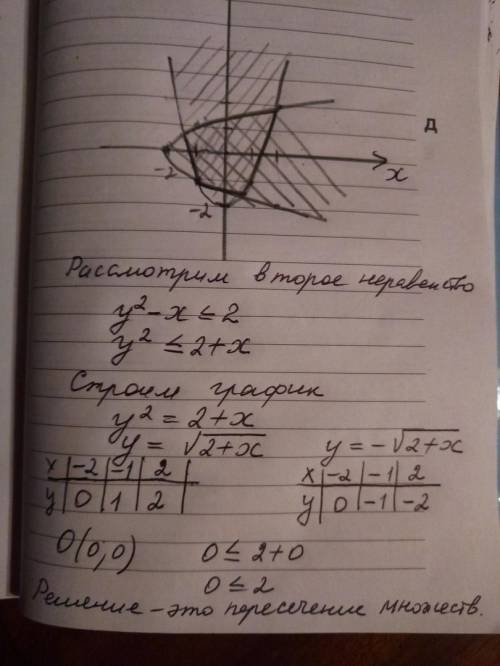 д
-2
x
-2
Рассмотрим второе неравенство
y² - x ≤ 2
y² ≤ 2 + x
Строим график
y² = 2 + x
y = √2+x y = -√2+x
x | -2 | -1 | 2 | x | -2 | -1 | 2
y | 0 | 1 | 2 | y | 0 | -1 | -2
O(0;0) 0 ≤ 2+0
0 ≤ 2
Решение - это пересечение множеств.